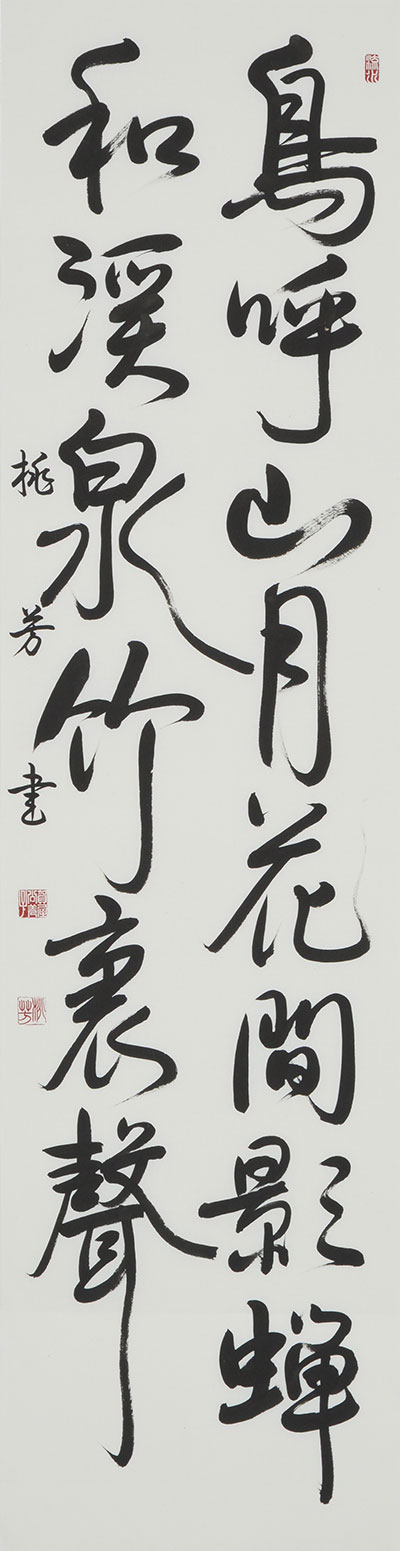 鳥呼山月花間影蝉
和溪泉竹裏聲
桃芳書